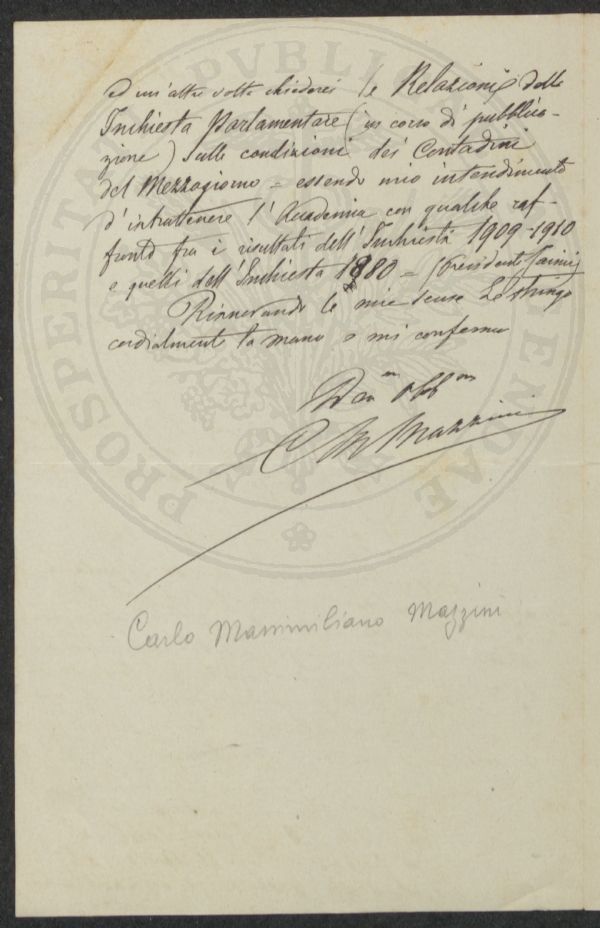 ed un'altra volta chiederei le Relazioni della
Inchiesta Parlamentare (in corso di pubblica-
zione) sulle condizioni dei Contadini
del Mezzogiorno = essendo mio intendimento
d'intrattenere l'Accademia con qualche raf-
fronto fra i risultati dell'Inchiesta 1909-1910
e quelli dell'Inchiesta 1880 = (Presidente Faina)
Rinnovando le mie scuse Le stringo
cordialmente la mano e mi confermo
obb mo
C M Mazzini
Carlo Massimiliano Mazzini
PROSPERITATI PVBLI